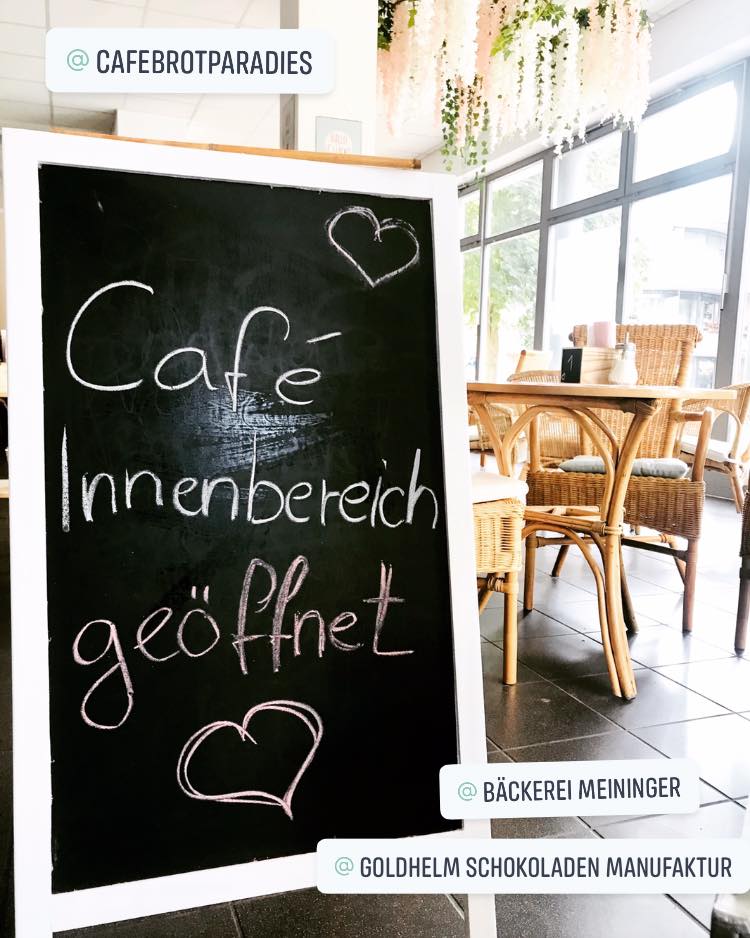 @ CAFEBROTPARADIES
Café
Innenbereich
geöffnet
1
@ BÄCKEREI MEININGER
@ GOLDHELM SCHOKOLADEN MANUFAKTUR